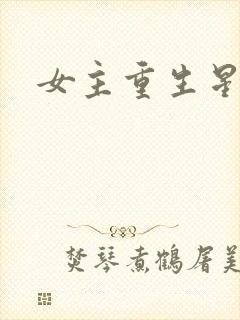 女主重生星
焚琴煮鹤屠美